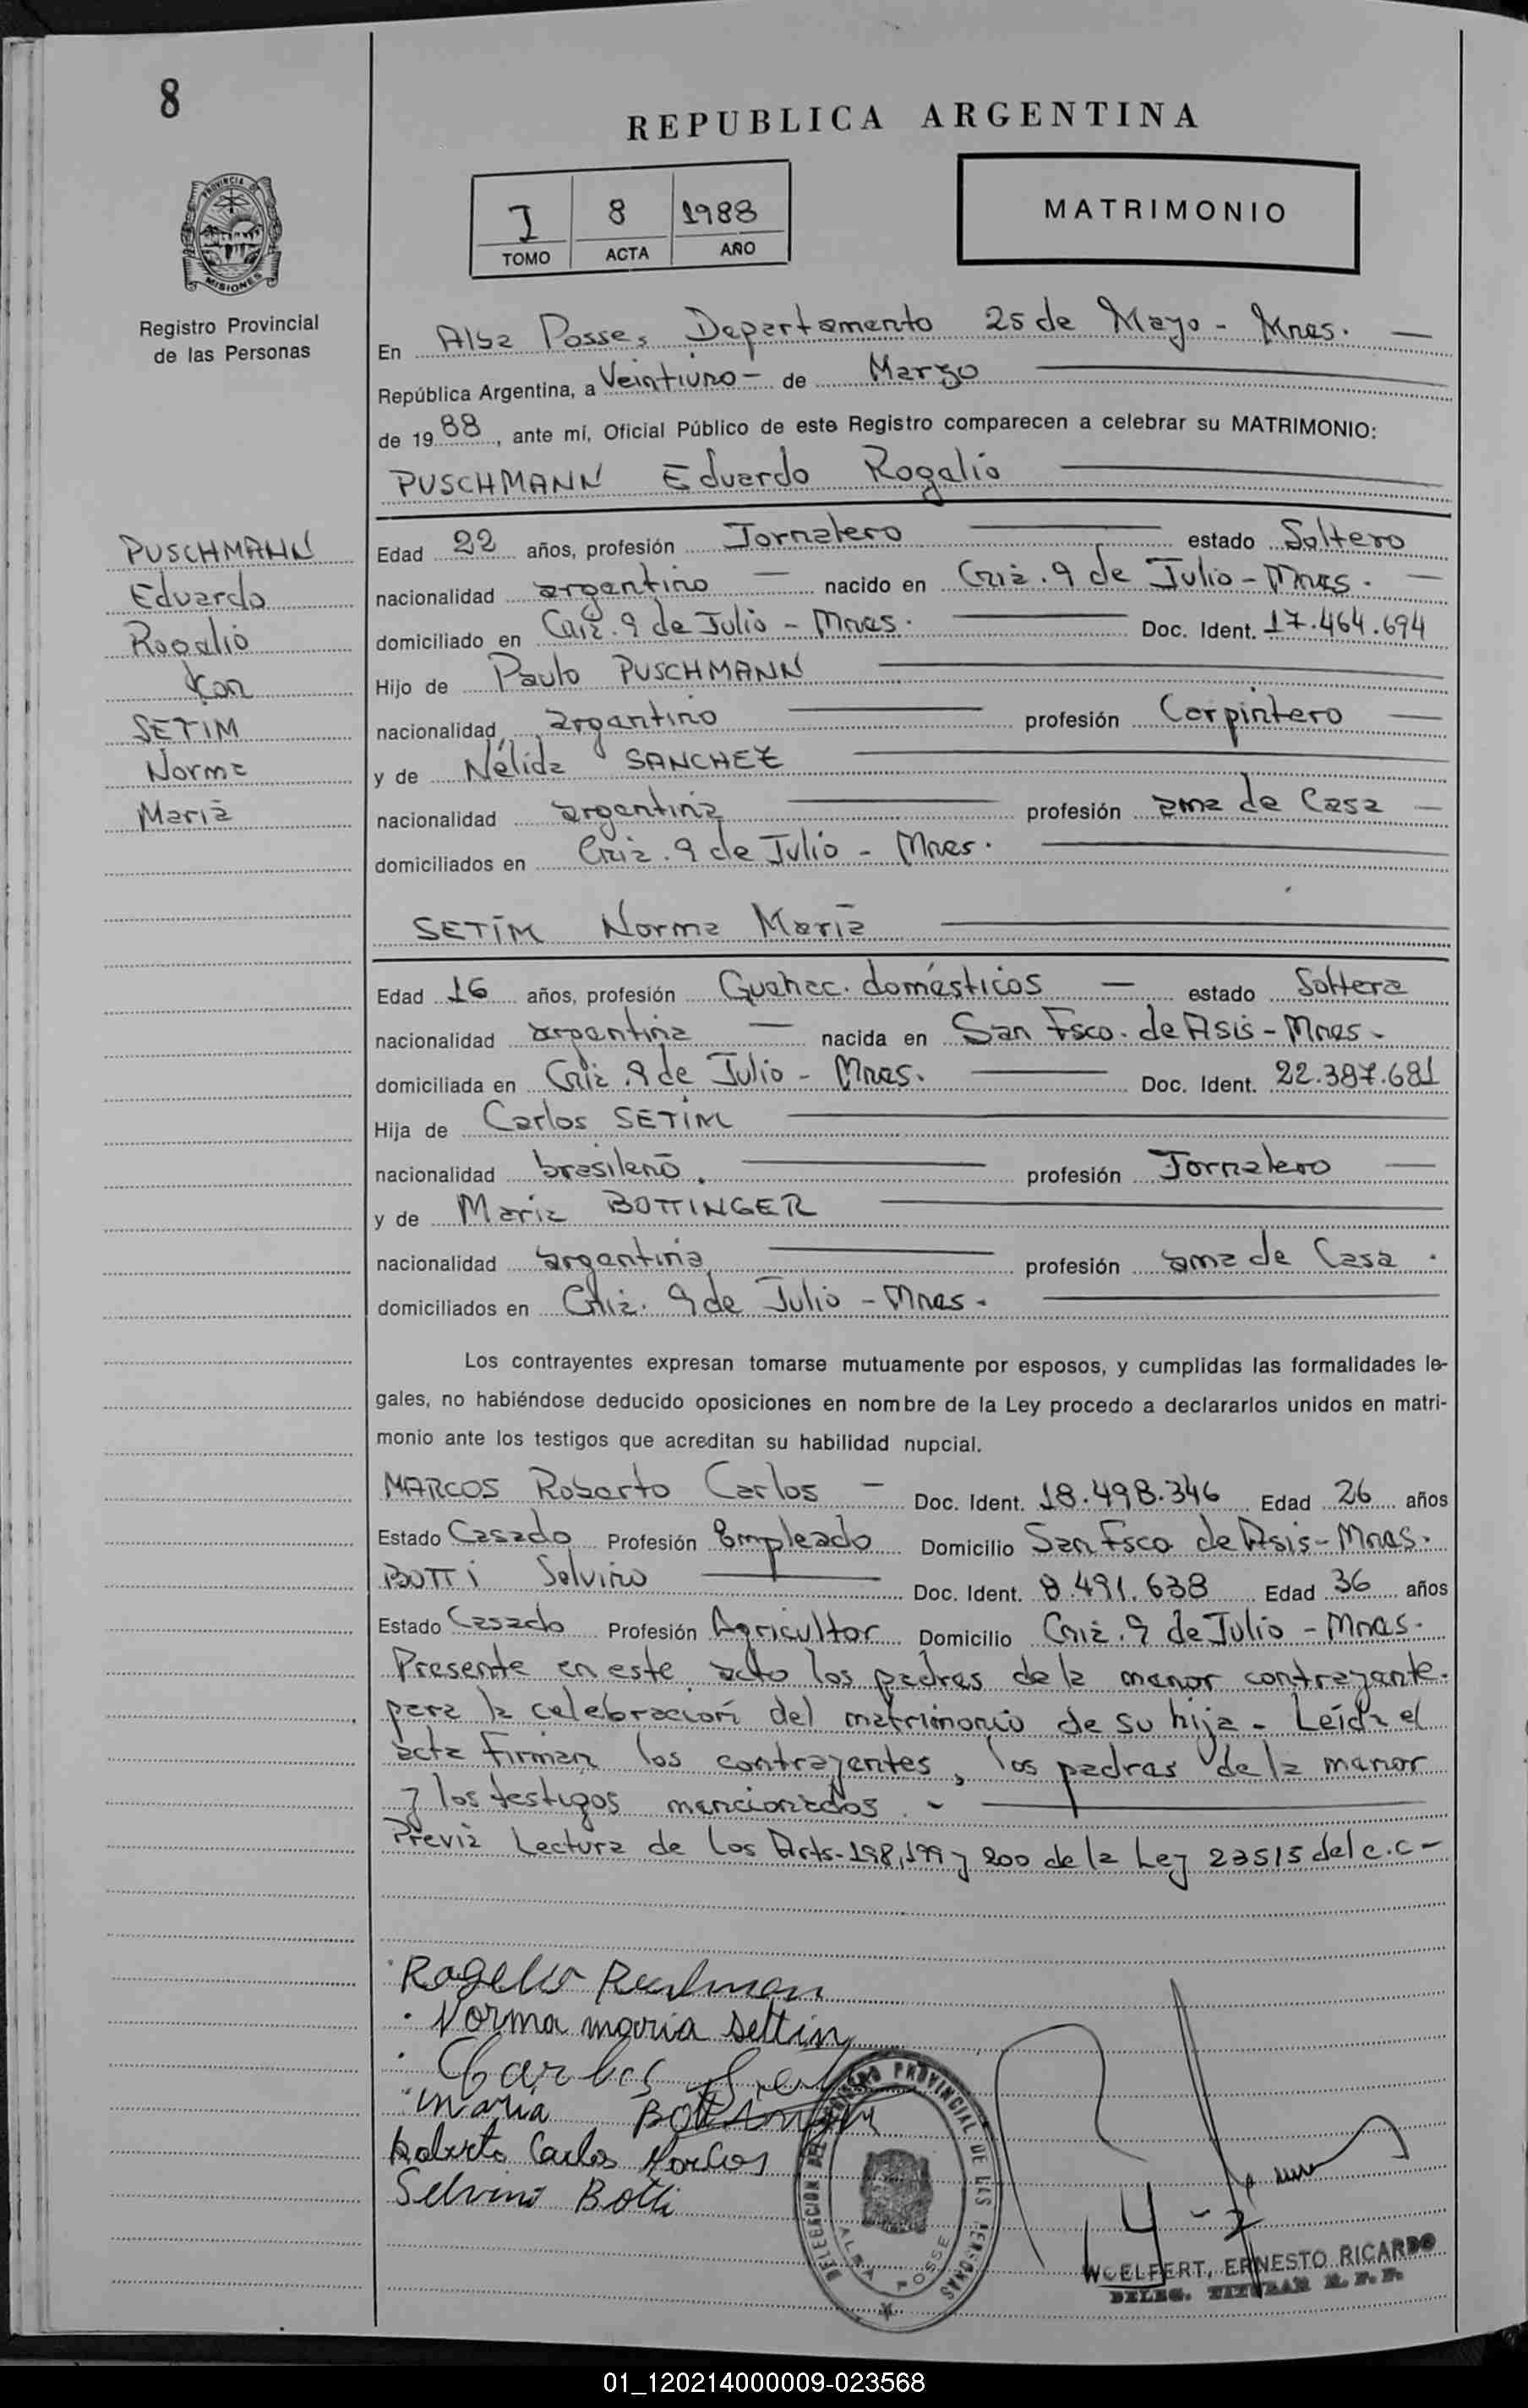 8
REPUBLICA ARGENTINA
PROVINCIA DE MISIONES
Registro Provincial
de las Personas
I 8 1988
TOMO ACTA AÑO
MATRIMONIO
En Alba Posse, Departamento 25 de Mayo - Mnes.
República Argentina, a Veintiuno - de Marzo
de 1988, ante mí, Oficial Público de este Registro comparecen a celebrar su MATRIMONIO:
PUSCHMANN Eduardo Rogelio
PUSCHMANN
Eduardo
Rogelio
Con
SETIM
Norma
María
Edad 22 años, profesión Jornalero estado Soltero
nacionalidad argentino - nacido en Cnia. 9 de Julio - Mnes. -
domiciliado en Cnia. 9 de Julio - Mnes. Doc. Ident. 17.464.694
Hijo de Paulo PUSCHMANN
nacionalidad argentino profesión Carpintero
y de Nélida SANCHEZ
nacionalidad argentina profesión ama de Casa
domiciliados en Cnia. 9 de Julio - Mnes.
SETIM Norma María
Edad 16 años, profesión Quehac. domésticos - estado Soltera
nacionalidad argentina - nacida en San Fsco. de Asis - Mnes.
domiciliada en Cnia. 9 de Julio - Mnes. Doc. Ident. 22.387.681
Hija de Carlos SETIM
nacionalidad brasileño. profesión Jornalero
y de Maria BOTTINGER
nacionalidad argentina profesión ama de Casa.
domiciliados en Cnia. 9 de Julio - Mnes.
Los contrayentes expresan tomarse mutuamente por esposos, y cumplidas las formalidades le-
gales, no habiéndose deducido oposiciones en nombre de la Ley procedo a declararlos unidos en matri-
monio ante los testigos que acreditan su habilidad nupcial.
MARCOS Roberto Carlos - Doc. Ident. 18.498.346 Edad 26 años
Estado Casado Profesión Empleado Domicilio San Fsco de Asis - Mnes.
BOTTI Selvino Doc. Ident. 8.491.638 Edad 36 años
Estado Casado Profesión Agricultor Domicilio Cnia. 9 de Julio - Mnes.
Presente en este acto los padres de la menor contrayente.
para la celebración del matrimonio de su hija - Leída el
acta firman los contrayentes, los padres de la menor
y los testigos mencionados. -
Previa Lectura de los Arts - 198, 199 y 200 de la Ley 23515 del c.c -
Rogelio
Norma maria settin
Carlos
maria Bottinger
Roberto Carlos Marcos
Selvino Botti
DELEGACION DEL REGISTRO PROVINCIAL DE LAS PERSONAS
ALBA POSSE
WOELFERT, ERNESTO RICARDO
DELEG. TITULAR R. P. P.
01_120214000009-023568